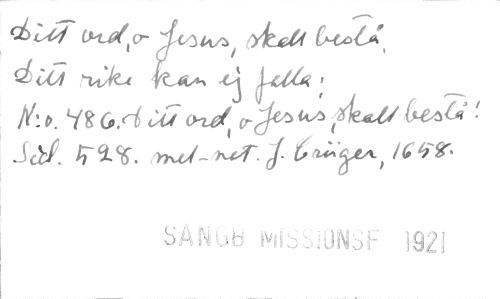 Ditt ord, o Jesus, skall bestå,
Ditt rike kan ej falla;
N:o. 486. Ditt ord, o Jesus, skall bestå!
Sid. 528. mel-not. J. Crüger, 1658.
SÅNGB MISSIONSF 1921